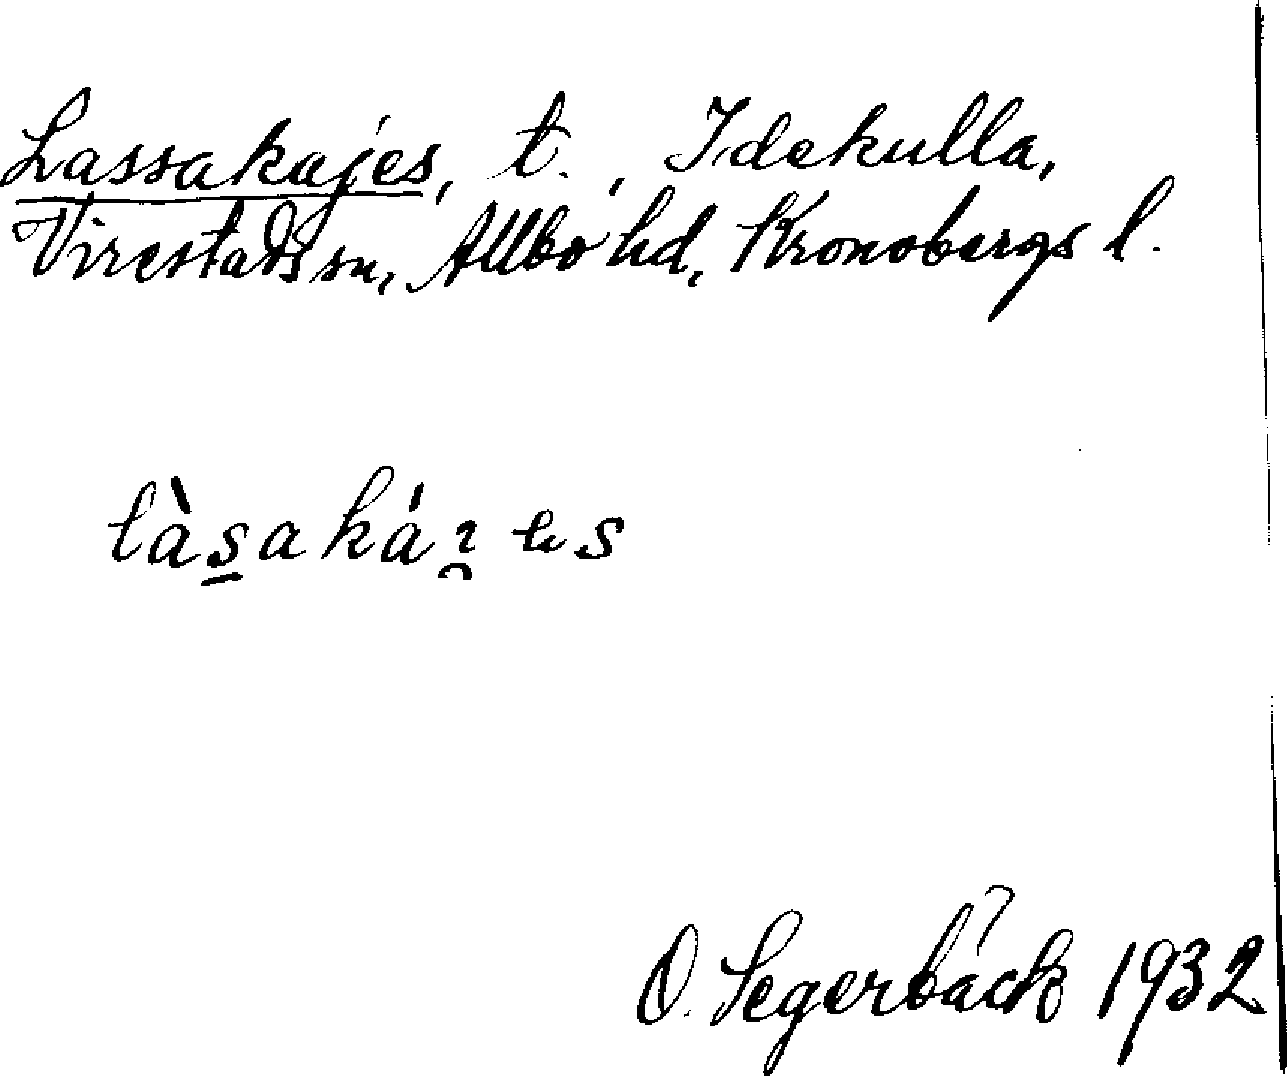 Lassakajes, t., Idekulla,
Virestads sn, Allbo hd, Kronobergs l.
O. Segerbäck 1932